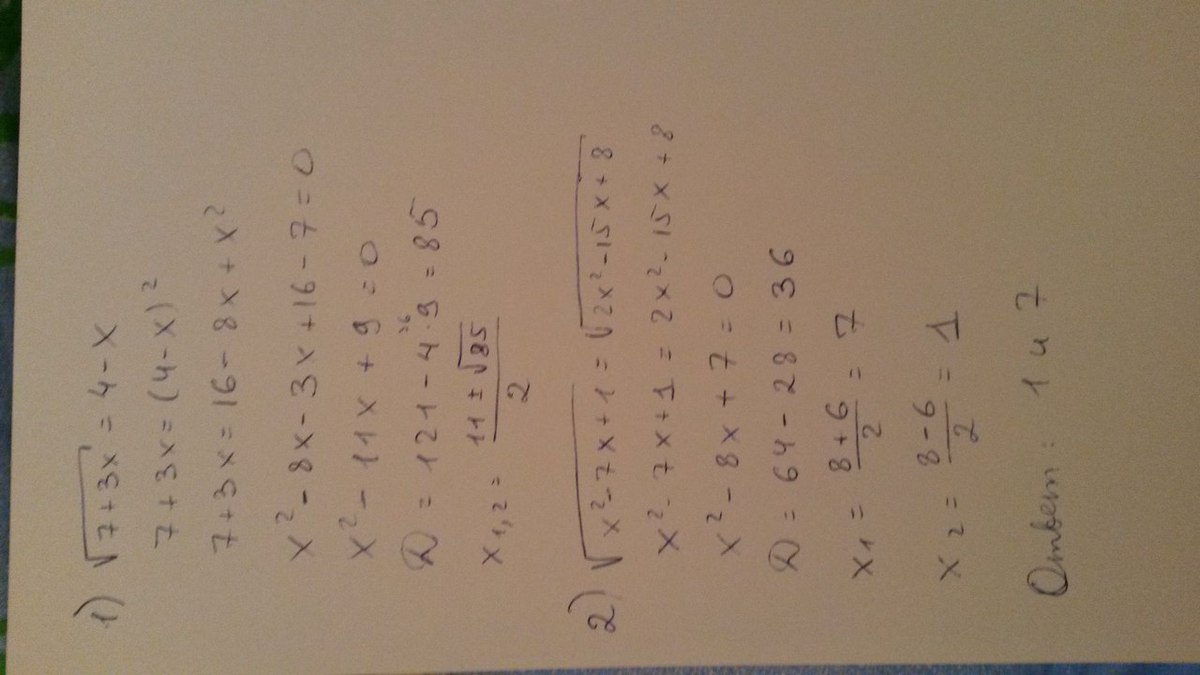 1) √(7+3x) = 4-x
7+3x = (4-x)²
7+3x = 16-8x+x²
x²-8x-3x+16-7=0
x²-11x+9=0
D = 121-4·9=85
x1,2 = (11±√85)/2
2) √(x²-7x+1) = √(2x²-15x+8)
x²-7x+1 = 2x²-15x+8
x²-8x+7=0
D = 64-28=36
x1 = (8+6)/2 = 7
x2 = (8-6)/2 = 1
Ответ: 1 и 7